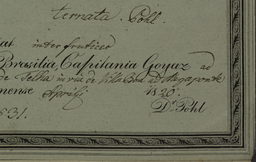 ternata. Pohl.
at inter frutices
Brasilia, Capitania Goyaz ad
de in via de Villa Boa ad
nense Aprili 1820.
D. Pohl
531.